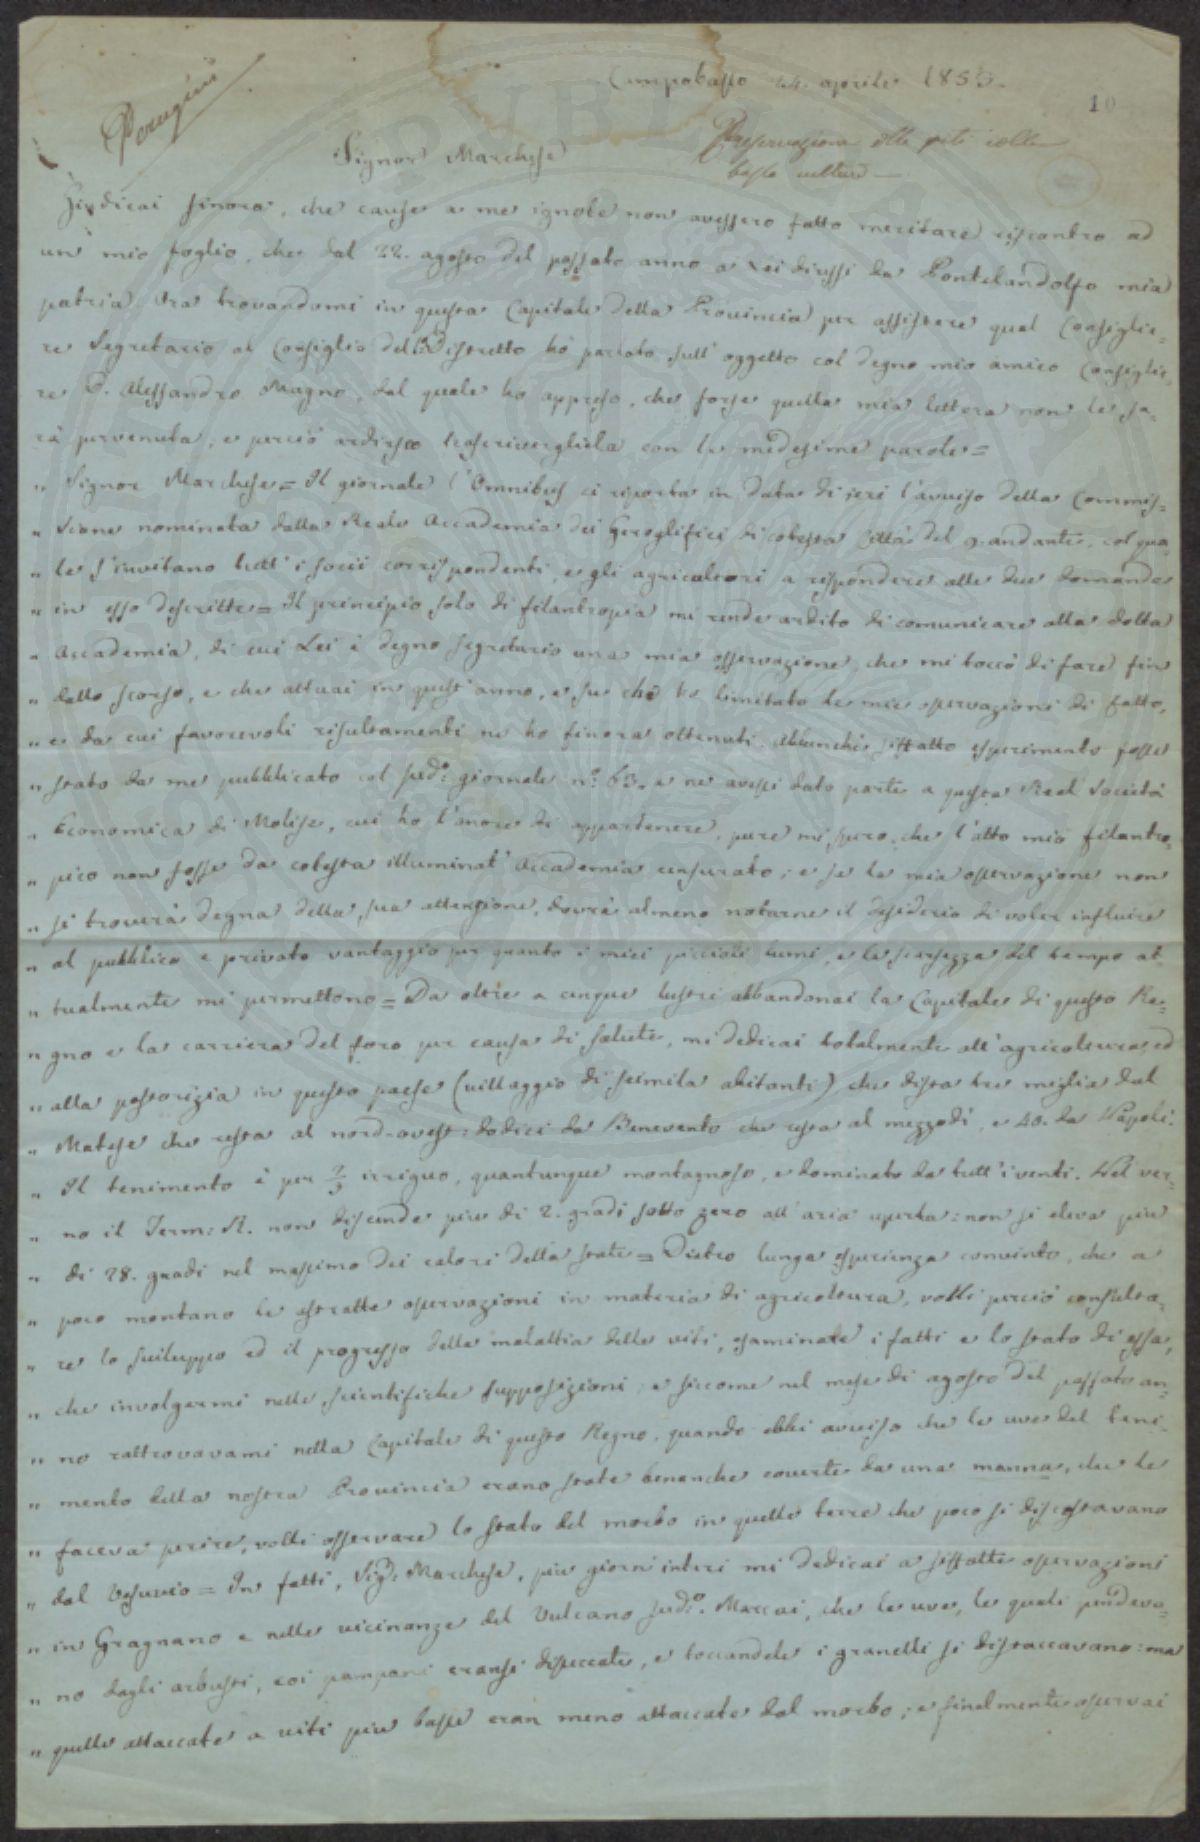 Campobasso 24. aprile 1853.
10
Perugini
Preservazione delle viti colla
bassa cultura —
Signor Marchese
Giudicai finora, che cause a me ignote non avessero fatto meritare riscontro ad
un mio foglio, che dal 22. agosto del passato anno a Lei diressi da Pontelandolfo mia
patria. Ora trovandomi in questa Capitale della Provincia per assistere qual Consiglie=
re Segretario al Consiglio del Distretto ho parlato sull' oggetto col degno mio amico Consiglie=
re D. Alessandro Magno, dal quale ho appreso, che forse quella mia lettera non le sa=
rà pervenuta; e perciò ardisco trascrivergliela con le medesime parole=
" Signor Marchese = Il giornale l'Omnibus ci riporta in data di jeri l'avviso della Commis=
" sione nominata dalla Reale Accademia dei Georgofili di cotesta Città del 9. andante, col qua=
" le s'invitano tutt' i socii corrispondenti, e gli agricoltori a rispondere alle due domande
" in esso descritte = Il principio solo di filantropia mi rende ardito di comunicare alla dotta
" Accademia, di cui Lei è degno segretario una mia osservazione, che mi toccò di fare fin
" dallo scorso, e che attuai in quest' anno, e su che ho limitato le mie osservazioni di fatto,
" e da cui favorevoli risultamenti ne ho finora ottenuti. Abbenchè siffatto esperimento fosse
" stato da me pubblicato col sud.o giornale n.o 63. e ne avessi dato parte a questa Real Società
" Economica di Molise, cui ho l'onore di appartenere, pure mi spero, che l'atto mio filantro=
" pico non fosse da cotesta illuminat' Accademia censurato; e se la mia osservazione non
" si troverà degna della sua attenzione, dovrà almeno notarne il desiderio di voler influire
" al pubblico e privato vantaggio per quanto i miei piccioli lumi, e la scarsezza del tempo at=
" tualmente mi permettono = Da oltre a cinque lustri abbandonai la Capitale di questo Re=
" gno e la carriera del foro per causa di salute, mi dedicai totalmente all' agricoltura, ed
" alla pastorizia in questo paese (villaggio di seimila abitanti) che dista tre miglia dal
" Matese che resta al nord-ovest: dodici da Benevento che resta al mezzodì, e 40. da Napoli.
" Il tenimento è per 2/3 irriguo, quantunque montagnoso, e dominato da tutt' i venti. Nel ver=
" no il Term: R. non discende più di 2. gradi sotto zero all' aria aperta: non si eleva più
" di 28. gradi nel massimo dei calori della state = Dietro lunga esperienza convinto, che a
" poco montano le astratte osservazioni in materia di agricoltura, volli perciò consulta=
" re lo sviluppo ed il progresso della malattia delle viti, esaminate i fatti e lo stato di essa,
" che involgermi nelle scientifiche supposizioni; e siccome nel mese di agosto del passato an=
" no rattrovavami nella Capitale di questo Regno, quando ebbi avviso che le uve del teni=
" mento della nostra Provincia erano state benanche coverte da una manna, che le
" faceva perire, volli osservare lo stato del morbo in quelle terre che poco si discostavano
" dal Vesuvio = In fatti, Sig.r Marchese, più giorni interi mi dedicai a siffatte osservazioni
" in Gragnano e nelle vicinanze del Vulcano sud.o. Marcai, che le uve, le quali pendeva=
" no dagli arbusti, coi pampani eransi disseccate, e toccandole i granelli si distaccavano: ma
" quelle attaccate a viti più basse eran meno attaccate dal morbo; e finalmente osservai